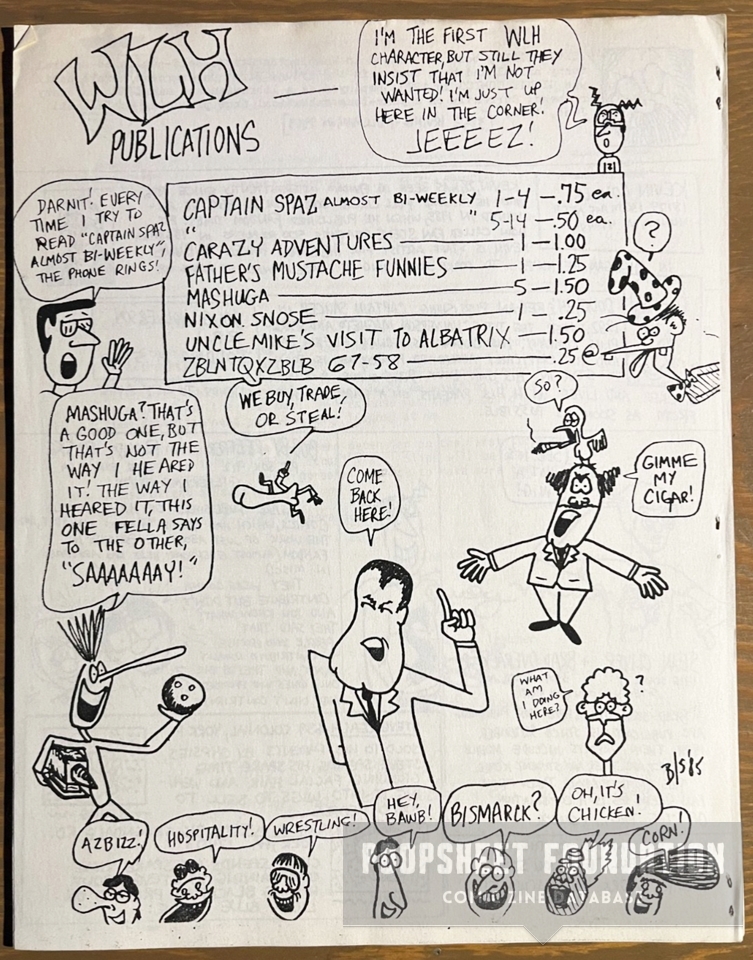 WLH
PUBLICATIONS
I'M THE FIRST WLH
CHARACTER, BUT STILL THEY
INSIST THAT I'M NOT
WANTED! I'M JUST UP
HERE IN THE CORNER!
JEEEEZ!
DARNIT! EVERY
TIME I TRY TO
READ "CAPTAIN SPAZ
ALMOST BI-WEEKLY",
THE PHONE RINGS!
CAPTAIN SPAZ ALMOST BI-WEEKLY 1-4 —.75 ea.
" " 5-14 —.50 ea.
CARAZY ADVENTURES — 1 —1.00
FATHER'S MUSTACHE FUNNIES — 1 —1.25
MASHUGA — 5 —1.50
NIXON SNOSE — 1 — .25
UNCLE MIKE'S VISIT TO ALBATRIX —1.50
ZBLNTQXZBLB 67-58 — .25@
?
WE BUY, TRADE,
OR STEAL!
SO?
MASHUGA? THAT'S
A GOOD ONE, BUT
THAT'S NOT THE
WAY I HEARED
IT! THE WAY I
HEARED IT, THIS
ONE FELLA SAYS
TO THE OTHER,
"SAAAAAAAY!"
COME
BACK
HERE!
GIMME
MY
CIGAR!
WHAT
AM
I DOING
HERE?
?
B/S'85
AZBIZZ!
HOSPITALITY!
WRESTLING!
HEY,
BAWB!
BISMARCK?
OH, IT'S
CHICKEN!
CORN!
POOPSHEET FOUNDATION
COMIC/ZINE DATABASE